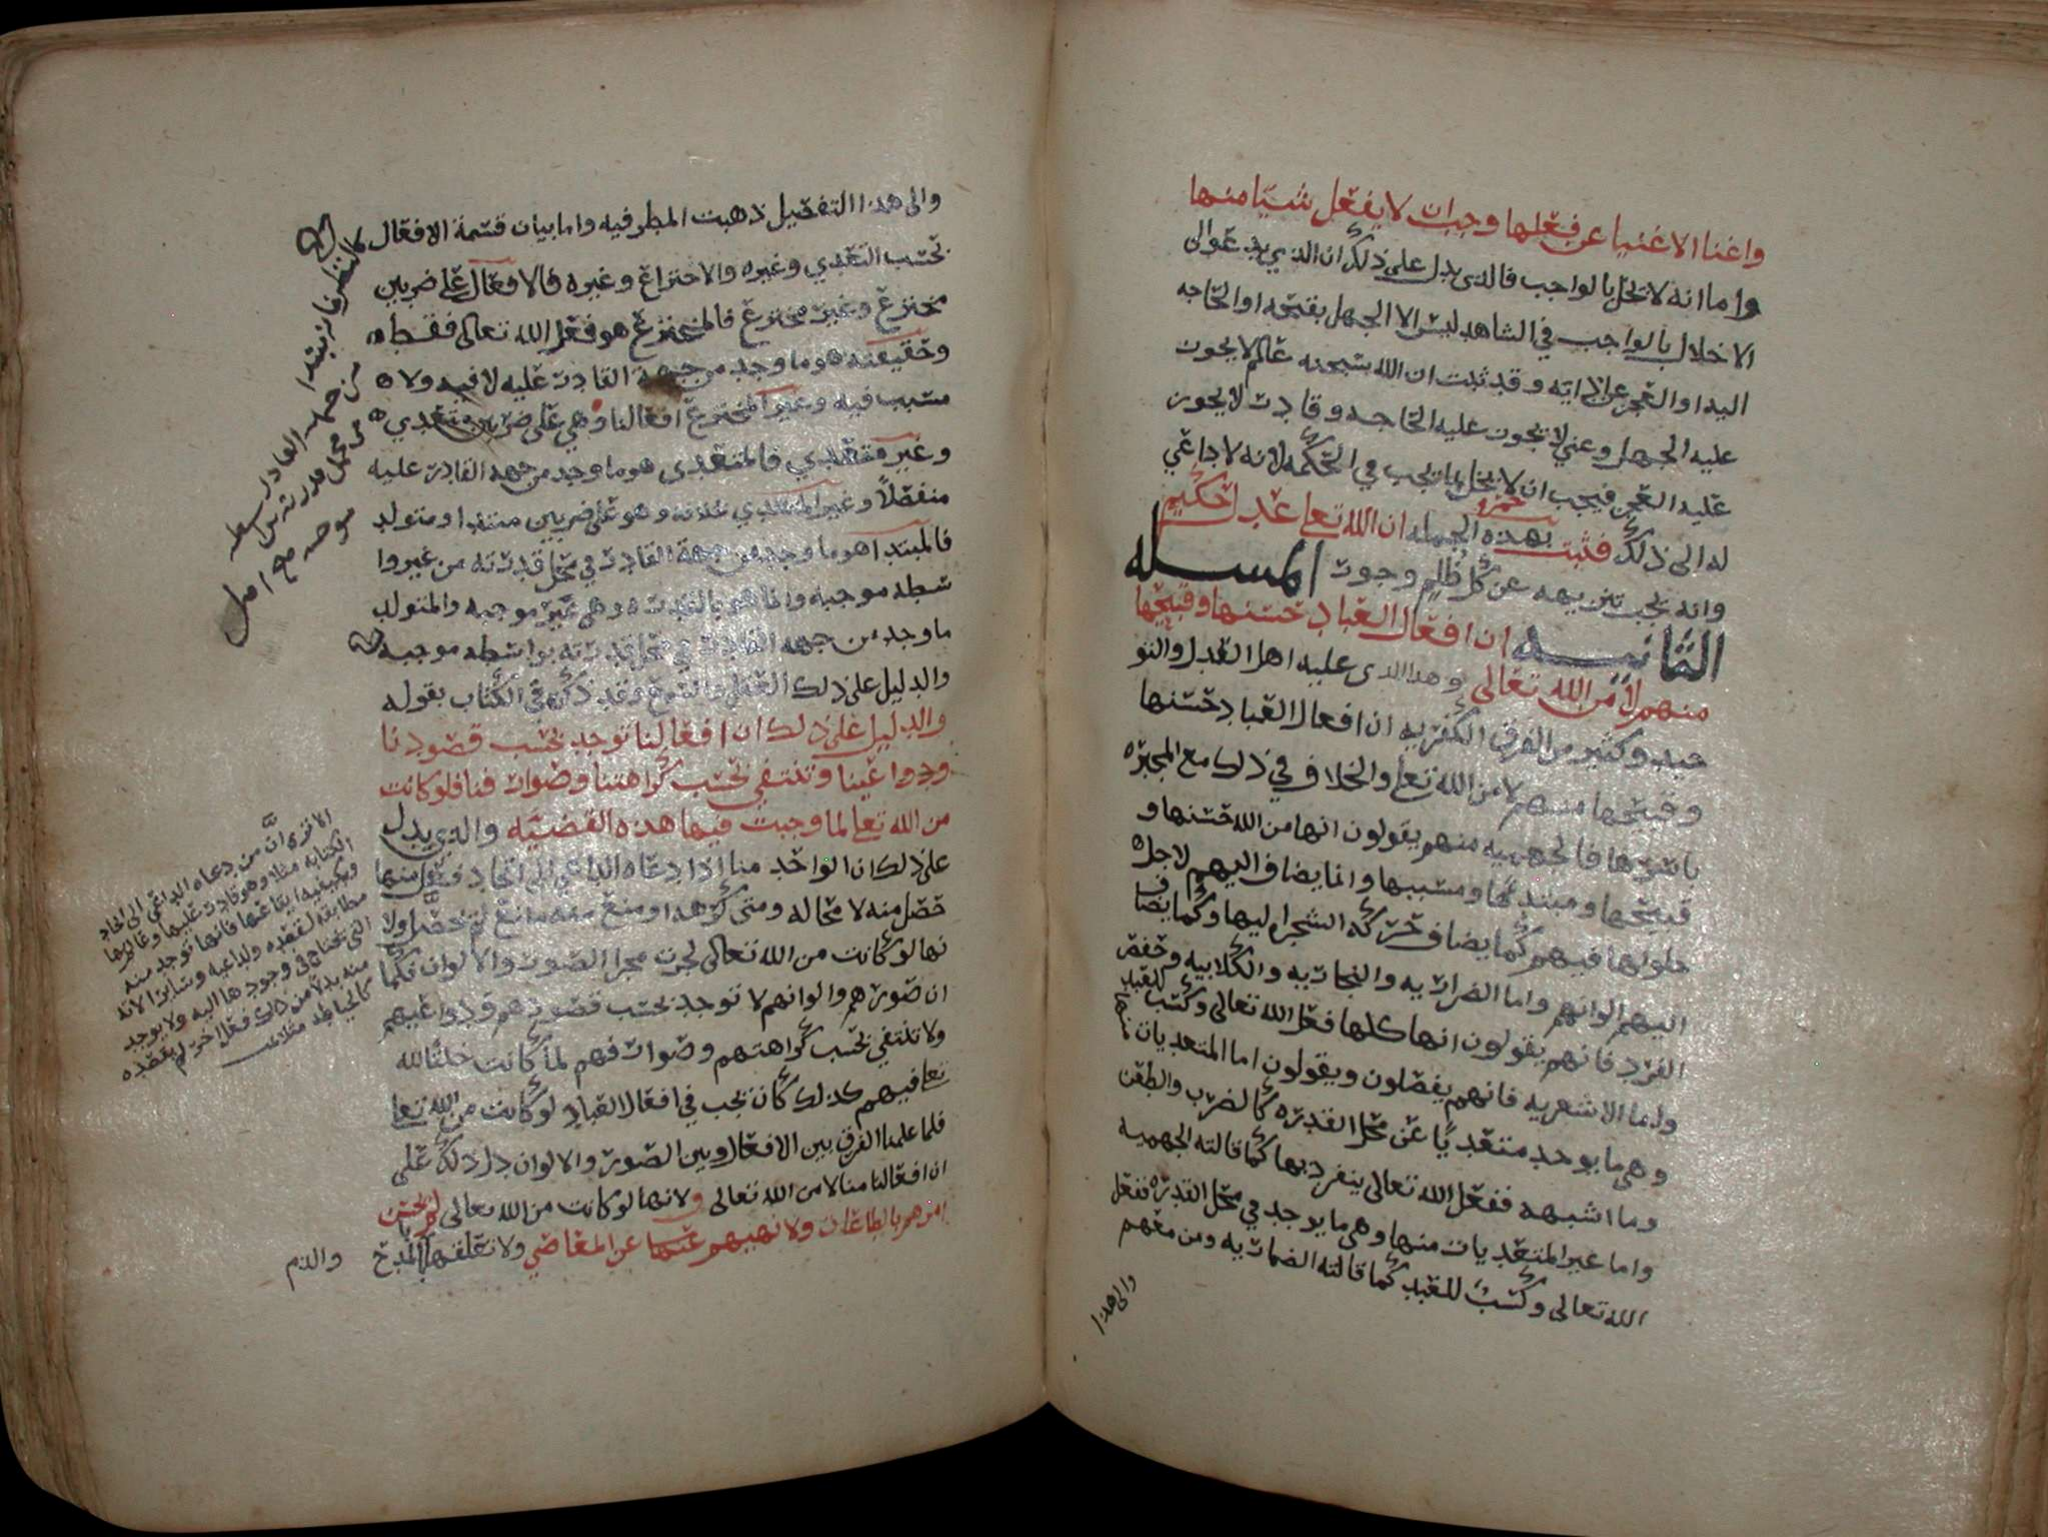 واغنا الاغنيا عن فعلها وجب ان لا يفعل شيا منها
واما انه لا يخل بالواجب فالذي يدل على ذلك ان الذي يدعوا الى
الاخلال بالواجب في الشاهد ليس الا الجهل بقبحه او الحاجه
اليه او العجز عن ازايته وقد ثبت ان الله سبحنه عالم لا يجوز
عليه الجهل وغني لا يجوز عليه الحاجه وقادر لا يجوز
عليه العجز فيجب ان لا يخل بما يجب في الحكمه لانه لا داعي
له الى ذلك فثبت بهذه الجمله ان الله تعالى عدل حكيم
وانه يجب تنزيهه عن كل ظلم وجور المسله
الثانيه ان افعال العباد حسنها وقبيحها
منهم لا من الله تعالى وهذا الذي عليه اهل العدل والتو
حيد وكثير من الفرق الكفريه ان افعال العباد حسنها
وقبيحها منهم لا من الله تعالى والخلاف في ذلك مع المجبره
باسرها فالجهميه منهم يقولون انها من الله حسنها و
قبيحها ومبتداها ومسببها وانما يضاف اليهم لاجل
حلولها فيهم كما يضاف حركه الشجراه ليها وكما يضاف
اليهم الوانهم واما الضراريه والنجاريه والكلابيه وحفص
الفرد فانهم يقولون انها كلها فعل الله تعالى وكسب للعبد
واما الاشعريه فانهم يفصلون ويقولون اما المتعديات منها
وهي ما يوجد متعديا عن محل القدره كالضرب والطعن
وما اشبهه ففعل الله تعالى ينفرد بها كما قالته الجهميه
واما غير المتعديات منها وهي ما يوجد في محل القدره ففعل
الله تعالى وكسب للعبد كما قالته الضراريه ومن معهم
والى هذا
والى هذا التفصيل ذهبت المطرفيه واما بيان قسمة الافعال
بحسب التعدي وغيره والاختراع وغيره فالافعال على ضربين
مخترع وغير مخترع فالمخترع هو فعل الله تعالى فقط
وحقيقته هو ما وجد من جهة القادر عليه لا فيه ولا
مسبب فيه وغير المخترع افعالنا وهي على ضربين متعدي
وغير متعدي فالمتعدي هو ما وجد من جهه القادر عليه
منفصلا وغير المتعدي خلافه وهو على ضربين مبتدا ومتولد
فالمبتدا هو ما وجد من جهة القادر في محل قدرته من غير وا
سطه موجبه وانما هو بالقدره وهي غير موجبه والمتولد
ما وجد من جهه القادر في محل قدرته بواسطه موجبه
والدليل على ذلك العقل والسمع وقد ذكره في الكتاب بقوله
والدليل على ذلك ان افعالنا توجد بحسب قصودنا
ودواعينا وتنتفي بحسب كراهتنا وصوارفنا فلو كانت
من الله تعالى لما وجبت فيها هذه القضيه والذي يدل
على ذلك ان الواحد منا اذا دعاه الداعي الى ايجاد فعل منها
حصل منه لا محاله ومتى كرهه او منع منه مانع لم يحصل ولا
نها لو كانت من الله تعالى لجرت مجرا الصور والالوان فكما
ان صورهم والوانهم لا توجد بحسب قصودهم ودواعيهم
ولا تنتفي بحسب كراهتهم وصوارفهم لما كانت خلقا لله
تعالى فيهم كذلك كان يجب في افعال العباد لو كانت من الله تعالى
فلما علمنا الفرق بين الافعال وبين الصور والالوان دل ذلك على
ان افعالنا منا لا من الله تعالى ولانها لو كانت من الله تعالى لم يحسن
امرهم بالطاعات ولا نهيهم عن المعاصي ولا تعلقها المدح
والذم
الا ترى ان من دعاه الداعي الى ايجاد
الكتابه مثلا وهو قادر عليها وعالم بها
وبكيفيه ايقاعها فانها توجد منه
مطابقه لقصده ولداعيه وساير الاته
التي يحتاج في وجودها اليه ولا يوجد
منه بدلا من ذلك فعل اخر لم يقصده
كالخياطه مثلا